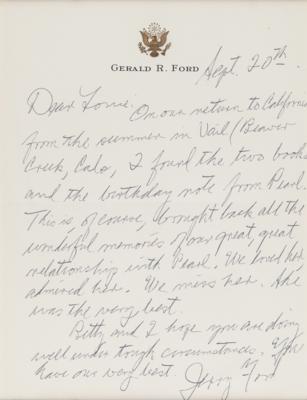 GERALD R. FORD
Sept. 20th.
Dear Lorrie.
On our return to California
from the summer in Vail/Beaver
Creek, Colo, I found the two books
and the birthday note from Pearl.
This, of course, brought back all the
wonderful memories of our great, great
relationship with Pearl. We loved her
admired her. We miss her. She
was the very best.
Betty and I hope you are doing
well under tough circumstances. You
have our very best.
Jerry Ford